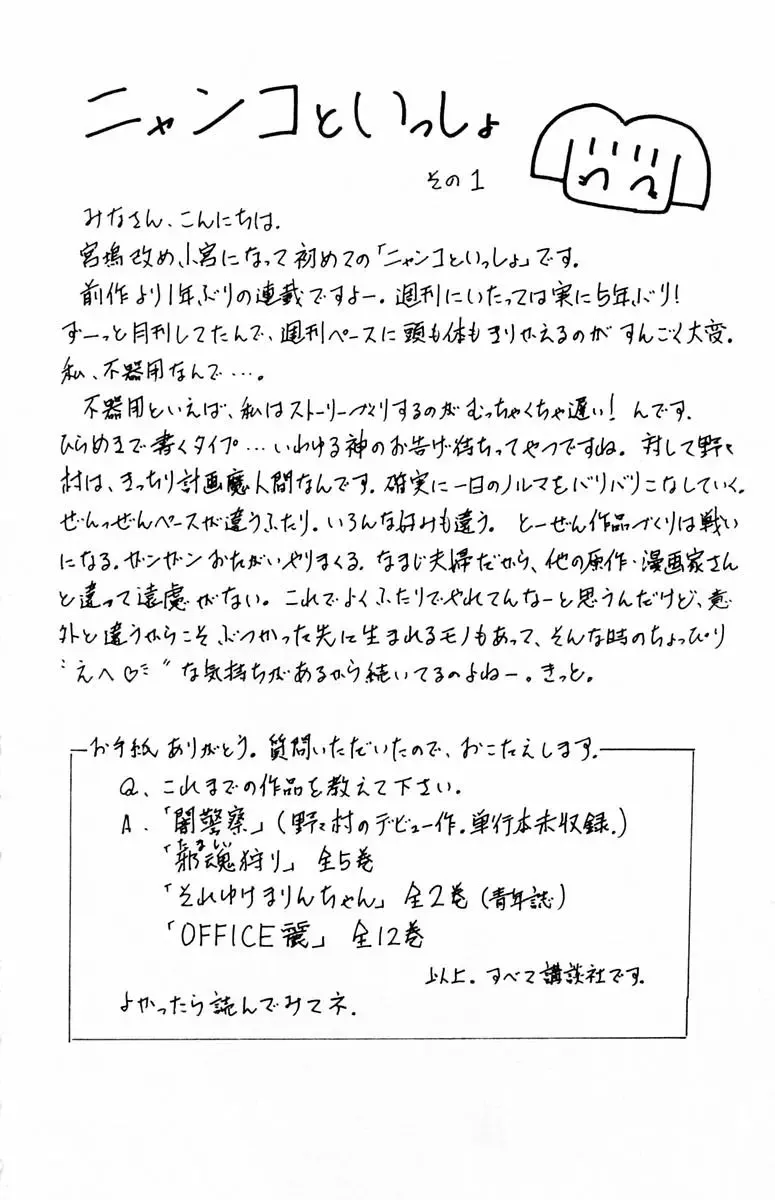 ニャンコといっしょ
その1
みなさん、こんにちは.
宮塢改め、小宮になって初めての「ニャンコといっしょ」です。
前作より1年ぶりの連載ですよー。週刊にいたっては実に5年ぶり!
ずーっと月刊してたんで、週刊ペースに頭も体もきりかえるのが すんごく大変。
私、不器用なんで…。
不器用といえば、私はストーリーづくりするのがむっちゃくちゃ遅い! んです.
ひらめきで書くタイプ…いわゆる神のお告げ待ちってやつですね。対して野々
村は、きっちり計画魔人間なんです. 確実に一日のノルマをバリバリこなしていく.
ぜんっぜんペースが違うふたり. いろんな好みも違う。 とーぜん作品づくりは戦い
になる. ガンガンおたがいやりまくる. なまじ夫婦だから、他の原作・漫画家さん
と違って遠慮がない。これでよくふたりでやれてんなーと思うんだけど、意
外と違うからこそぶつかった先に生まれるモノもあって、そんな時のちょっぴり
"えへ♡" な気持ちがあるから続いてるのよねー。きっと。
お手紙ありがとう。質問いただいたので、おこたえします.
Q、これまでの作品を教えて下さい.
A. 「闇警察」(野々村のデビュー作. 単行本未収録.)
「邪魂狩り」 全5巻
たまい
「それゆけまりんちゃん」全2巻 (青年誌)
「OFFICE麗」 全12巻
以上。すべて講談社です.
よかったら読んでみてネ.